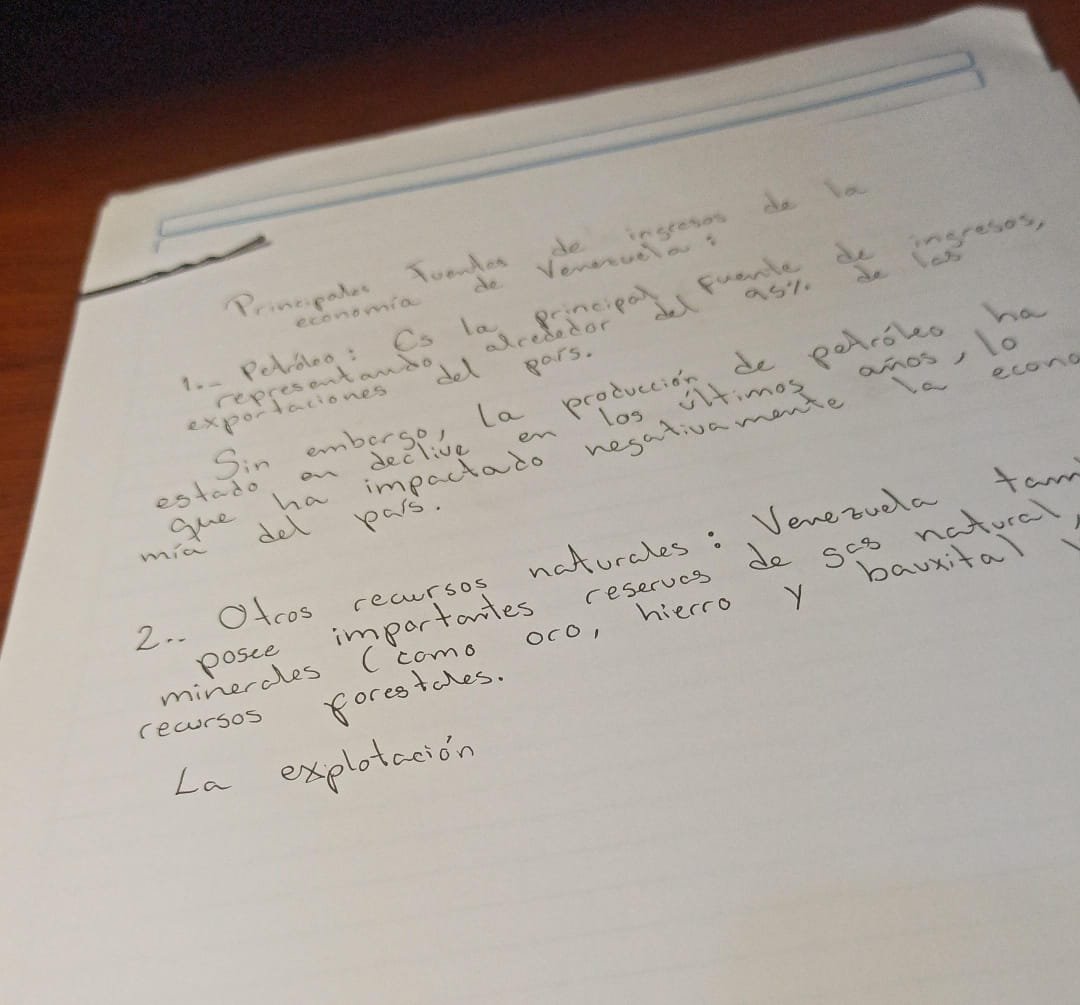 Principales Fuentes de ingresos de la
economía de Venezuela:
1.- Petróleo: Es la principal fuente de ingresos,
representando alrededor del 95% de las
exportaciones del país.
Sin embargo, la producción de petróleo ha
estado en declive en los últimos años, lo
que ha impactado negativamente la econo
mía del país.
2.- Otros recursos naturales: Venezuela tam
posee importantes reservas de gas natural,
minerales (como oro, hierro y bauxita)
recursos forestales.
La explotación